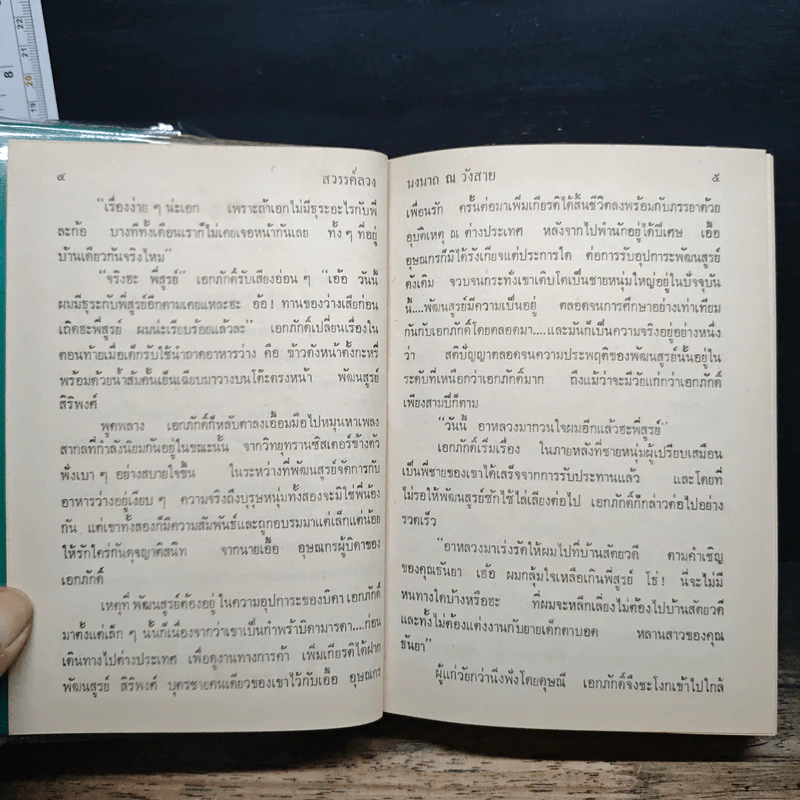 8
22
21
20
19
๔ สวรรค์ลวง
"เรื่องง่าย ๆ น่ะเอก เพราะถ้าเอกไม่มีธุระอะไรกับพี่
ละก้อ บางทีทั้งเดือนเราก็ไม่เคยเจอหน้ากันเลย ทั้ง ๆ ที่อยู่
บ้านเดียวกันจริงไหม"
"จริงฮะ พี่สูรย์" เอกภักดิ์รับเสียงอ่อน ๆ "เอ้อ วันนี้
ผมมีธุระกับพี่สูรย์อีกตามเคยแหละฮะ อ้อ! ทานของว่างเสียก่อน
เถิดฮะพี่สูรย์ ผมน่ะเรียบร้อยแล้วละ" เอกภักดิ์เปลี่ยนเรื่องใน
ตอนท้ายเมื่อเด็กรับใช้นำถาดอาหารว่าง คือ ข้าวตังหน้าตั้งกะหรี่
พร้อมด้วยน้ำส้มคั้นเย็นเฉียบมาวางบนโต๊ะตรงหน้า พัฒนสูรย์
สิริพงศ์
พูดพลาง เอกภักดิ์ก็หลับตาลงเอื้อมมือไปหมุนหาเพลง
สากลที่กำลังนิยมกันอยู่ในขณะนั้น จากวิทยุทรานซิสเตอร์ข้างตัว
ฟังเบา ๆ อย่างสบายใจขึ้น ในระหว่างที่พัฒนสูรย์จัดการกับ
อาหารว่างอยู่เงียบ ๆ ความจริงถึงบุรุษหนุ่มทั้งสองจะมิใช่พี่น้อง
กัน แต่เขาทั้งสองก็มีความสัมพันธ์และถูกอบรมมาแต่เล็กแต่น้อย
ให้รักใคร่กันดุจญาติสนิท จากนายเอื้อ อุษณกรผู้บิดาของ
เอกภักดิ์
เหตุที่ พัฒนสูรย์ต้องอยู่ ในความอุปการะของบิดา เอกภักดิ์
มาตั้งแต่เล็ก ๆ นั้นก็เนื่องจากว่าเขาเป็นกำพร้าบิดามารดา....ก่อน
เดินทางไปต่างประเทศ เพื่อดูงานทางการค้า เพิ่มเกียรติได้ฝาก
พัฒนสูรย์ สิริพงศ์ บุตรชายคนเดียวของเขาไว้กับเอื้อ อุษณกร
นงนาถ ณ วังสาย ๕
เพื่อนรัก ครั้นต่อมาเพิ่มเกียรติได้สิ้นชีวิตลงพร้อมกับภรรยาด้วย
อุบัติเหตุ ณ ต่างประเทศ หลังจากไปพำนักอยู่ได้ปีเศษ เอื้อ
อุษณกรก็มิได้รังเกียจแต่ประการใด ต่อการรับอุปการะพัฒนสูรย์
ดังเดิม จวบจนกระทั่งเขาเติบโตเป็นชายหนุ่มใหญ่อยู่ในปัจจุบัน
นี้....พัฒนสูรย์มีความเป็นอยู่ ตลอดจนการศึกษาอย่างเท่าเทียม
กันกับเอกภักดิ์โดยตลอดมา....และมันก็เป็นความจริงอยู่อย่างหนึ่ง
ว่า สติปัญญาตลอดจนความประพฤติของพัฒนสูรย์นั้นอยู่ใน
ระดับที่เหนือกว่าเอกภักดิ์มาก ถึงแม้ว่าจะมีวัยแก่กว่าเอกภักดิ์
เพียงสามปีก็ตาม
"วันนี้ อาหลวงมากวนใจผมอีกแล้วฮะพี่สูรย์"
เอกภักดิ์เริ่มเรื่อง ในภายหลังที่ชายหนุ่มผู้เปรียบเสมือน
เป็นพี่ชายของเขาได้เสร็จจากการรับประทานแล้ว และโดยที่
ไม่รอให้พัฒนสูรย์ซักไซ้ไล่เลียงต่อไป เอกภักดิ์ก็กล่าวต่อไปอย่าง
รวดเร็ว
"อาหลวงมาเร่งรัดให้ผมไปที่บ้านสัตยวดี ตามคำเชิญ
ของคุณธันยา เฮ้อ ผมกลุ้มใจเหลือเกินพี่สูรย์ โธ่! นี่จะไม่มี
หนทางใดบ้างหรือฮะ ที่ผมจะหลีกเลี่ยงไม่ต้องไปบ้านสัตยวดี
และทั้งไม่ต้องแต่งงานกับยายเด็กตาบอด หลานสาวของคุณ
ธันยา"
ผู้แก่วัยกว่านิ่งฟังโดยดุษณี เอกภักดิ์จึงชะโงกเข้าไปใกล้